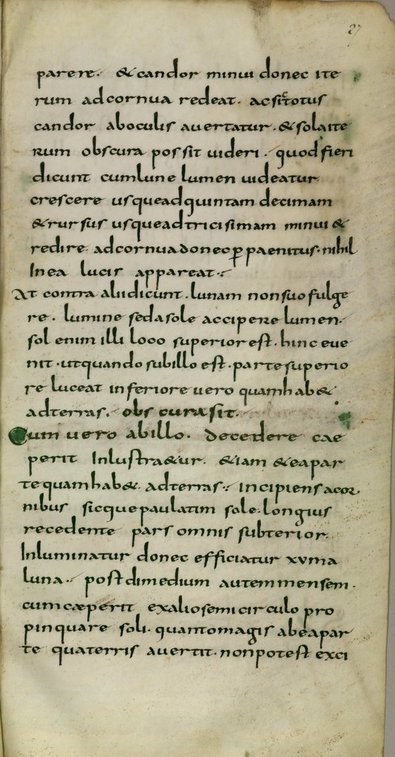 27
parere· & candor minui donec ite
rum ad cornua redeat· ac si totus
candor ab oculis auertatur· & sola ite
rum obscura possit uideri· quod fieri
dicunt cum lune lumen uideatur
crescere usque ad quintam decimam
& rursus usque ad tricisimam minui &
redire ad cornua donec p̄ paenitus· nihil
In ea lucis appareat·,
At contra alii dicunt· lunam non suo fulge
re· lumine sed a sole accipere lumen·
sol enim illi loco superior est· hinc eue
nit· ut quando sub illo est· parte superio
re luceat inferiore uero quam hab&
ad terras· obscura sit·
Cum uero ab illo· decedere cae
perit Inlustra&ur· & iam & ea par
te quam hab& ad terras·, incipiens a cor
nibus sicque paulatim sole· longius
recedente pars omnis subterior·
Inluminatur donec efficiatur xvma
luna·, post dimedium autem mensem·
cum cæperit ex alio semicirculo pro
pinquare soli· quanto magis ab ea par
te qua terris auertit· non potest exci